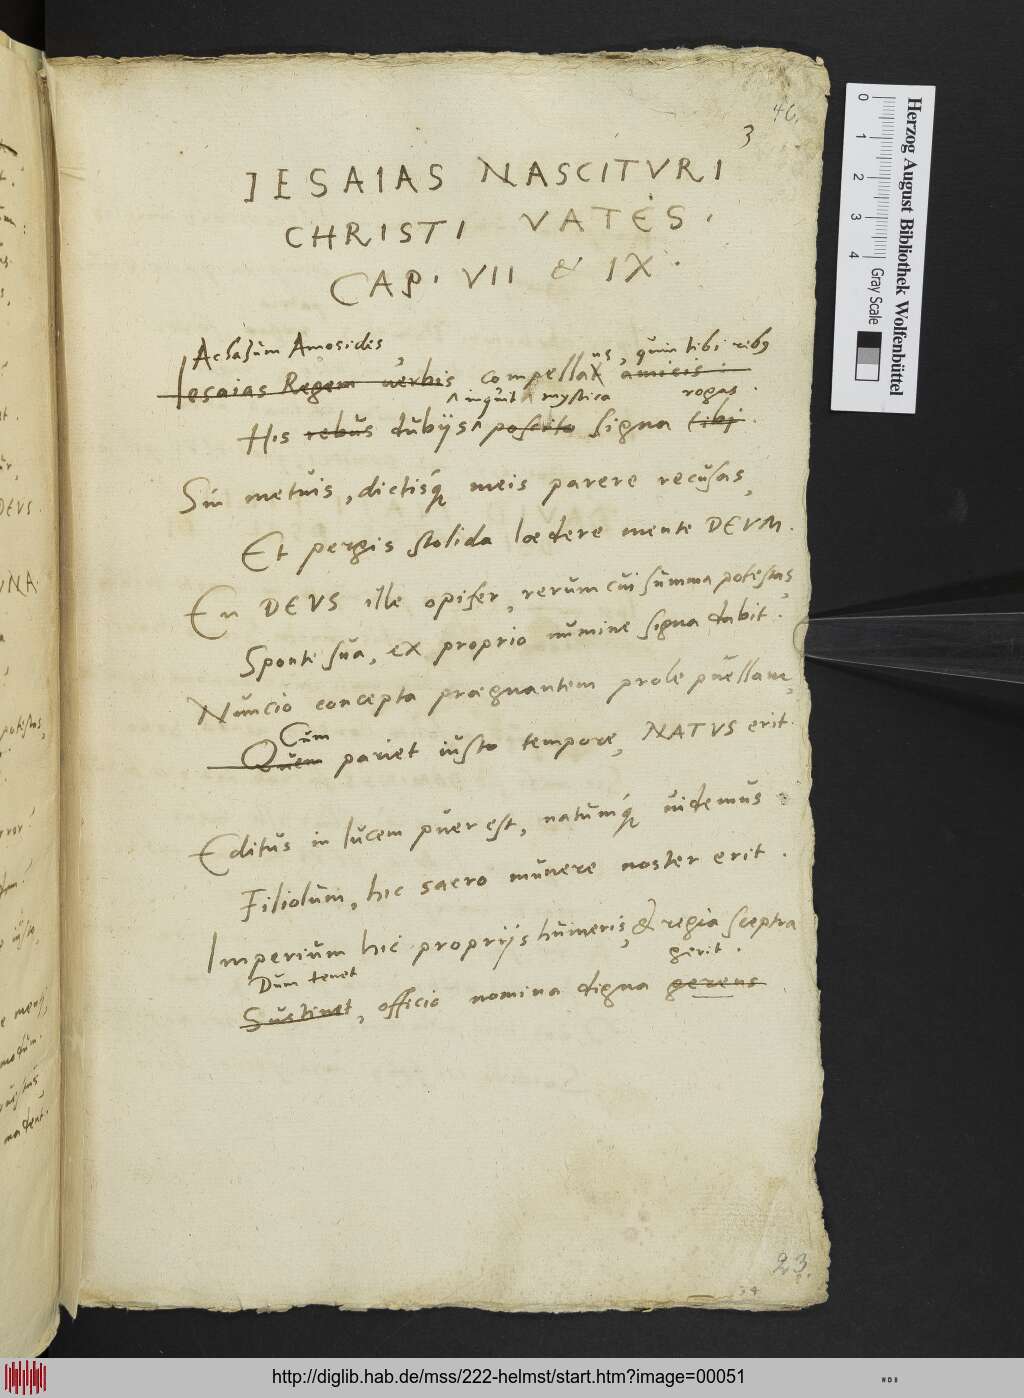 46.
3
IESAIAS NASCITVRI
CHRISTI VATES.
CAP. VII & IX.
Achasum Amosides, us, quin tibi rebus
Iesaias Regem verbis compellat amicis
inquit mystica rogas
His rebus dubijs poscito signa tibi.
Sin metuis, dictisq́ meis parere recusas,
Et pergis stolida lædere mente DEVM.
En DEVS ille opifer, rerum cui summa potestas,
Sponte sua, ex proprio numine signa dabit.
Nuncio concepta prægnantem prole puellam,
Cum
Quem pariet iusto tempore, NATVS erit.
Editus in lucem puer est, natumq́ uidemus
Filiolum, hic sacro munere noster erit.
Imperium hic proprijs humeris, & regia sceptra
Dum tenet gerit.
Sustinet, officio nomina digna gerens
23.
DEVS.
VNA.
potestas,
0 1 2 3 4
Herzog August Bibliothek Wolfenbüttel
Gray Scale
http://diglib.hab.de/mss/222-helmst/start.htm?image=00051